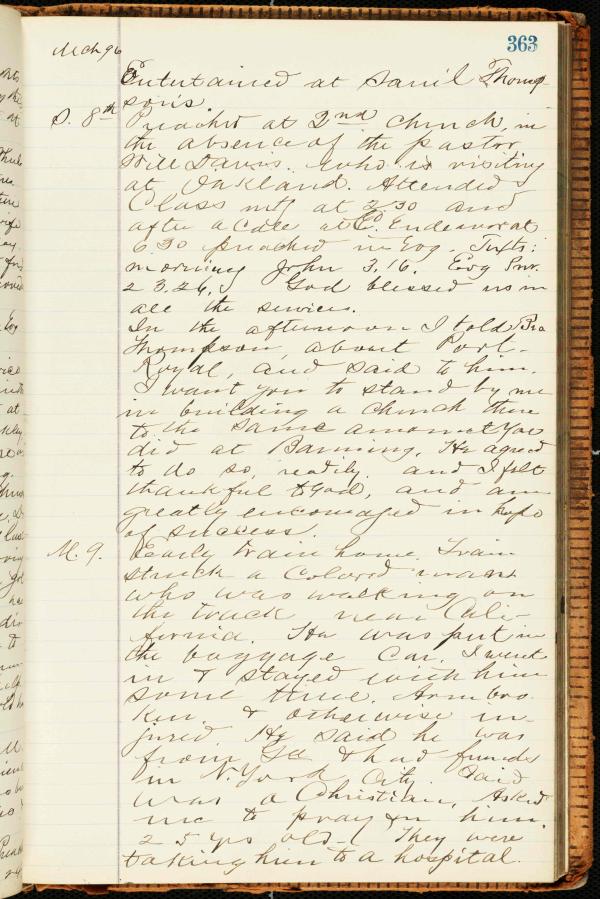 363
Mch 96
Entertained at Saml Thomp-
sons.
S. 8th Preached at 2nd church, in
the absence of the pastor
Will Davis. who is visiting
at Oakland. Attended
Class mtg at 2.30 and
after a call at C. Endeavor at
6.30 preached in Evg. Texts:
morning John 3.16. Evg Prv.
23.26. God blessed us in
all the services.
In the afternoon I told Bro
Thompson about Port-
Royal, and said to him.
I want you to stand by me
in building a church there
to the same amount you
did at Banning. He agreed
to do so, readily. and I felt
thankful to God, and am
greatly encouraged in hope
of success.
M. 9. Early train home. Train
struck a Colored man
who was walking on
the track near Cali-
fornia. He was put in
the baggage Car. I went
in & stayed with him
some time. Arm bro
ken. & otherwise in-
jured He said he was
from Ga & had friends
in N. York City. Said
was a Christian, Asked
me to pray for him.
25 yrs old – They were
taking him to a hospital.